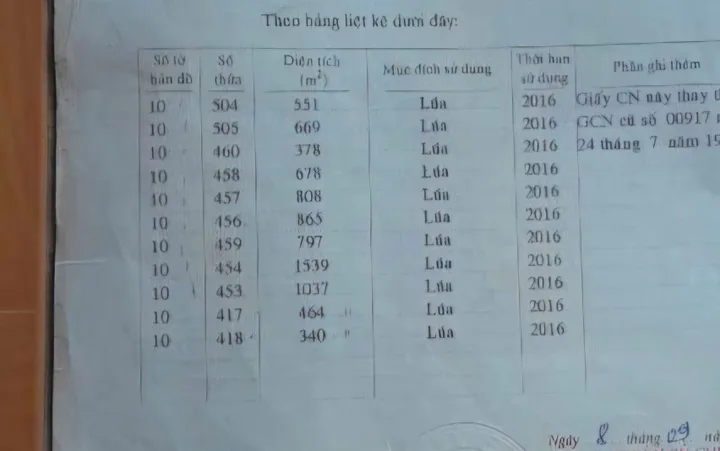 Theo bảng liệt kê dưới đây:
Số tờ bản đồ Số thửa Diện tích (m²) Mục đích sử dụng Thời hạn sử dụng Phần ghi thêm
10 504 551 Lúa 2016 Giấy CN này thay
10 505 669 Lúa 2016 GCN cũ số 00917
10 460 378 Lúa 2016 24 tháng 7 năm 19
10 458 678 Lúa 2016
10 457 808 Lúa 2016
10 456 865 Lúa 2016
10 459 797 Lúa 2016
10 454 1539 Lúa 2016
10 453 1037 Lúa 2016
10 417 464 " Lúa 2016
10 418 340 " Lúa 2016
Ngày 8 tháng 09